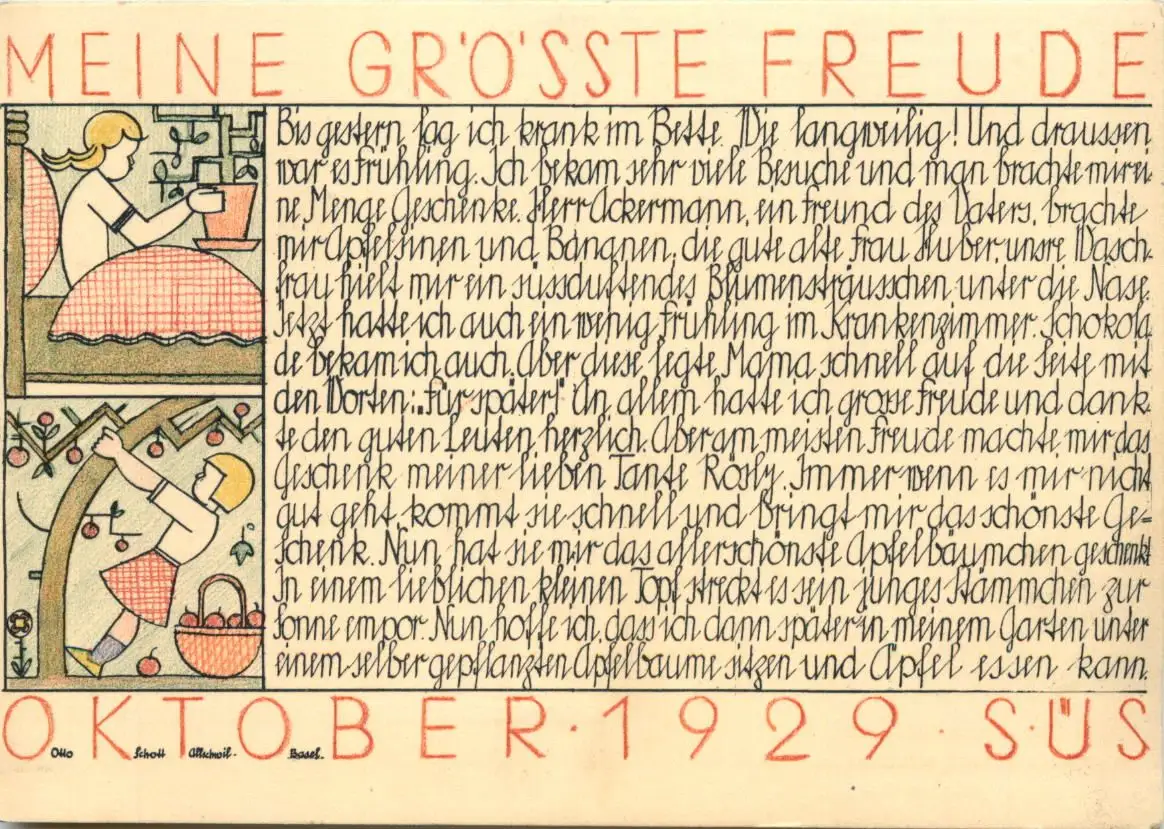 MEINE GRÖSSTE FREUDE
Bis gestern lag ich krank im Bette. Wie langweilig! Und draussen
war es Frühling. Ich bekam sehr viele Besuche und man brachte mir ei-
ne Menge Geschenke. Herr Ackermann, ein Freund des Vaters, brachte
mir Apfelsinen und Bananen, die gute alte Frau Huber, unsre Wasch-
frau hielt mir ein süssduftendes Blumensträusschen unter die Nase.
Jetzt hatte ich auch ein wenig Frühling im Krankenzimmer. Schokola-
de bekam ich auch. Aber diese legte Mama schnell auf die Seite mit
den Worten: „Für später!" An allem hatte ich grosse Freude und dank-
te den guten Leuten herzlich. Aber am meisten Freude machte mir das
Geschenk meiner lieben Tante Rösly. Immer wenn es mir nicht
gut geht, kommt sie schnell und bringt mir das schönste Ge=
schenk. Nun hat sie mir das allerschönste Apfelbäumchen geschenkt
In einem lieblichen kleinen Topf streckt es sein junges Stämmchen zur
Sonne empor. Nun hoffe ich, dass ich dann später in meinem Garten unter
einem selber gepflanzten Apfelbaume sitzen und Äpfel essen kann.
OKTOBER · 1929 · S·ÜS
Otto Schott Allschwil. Basel.